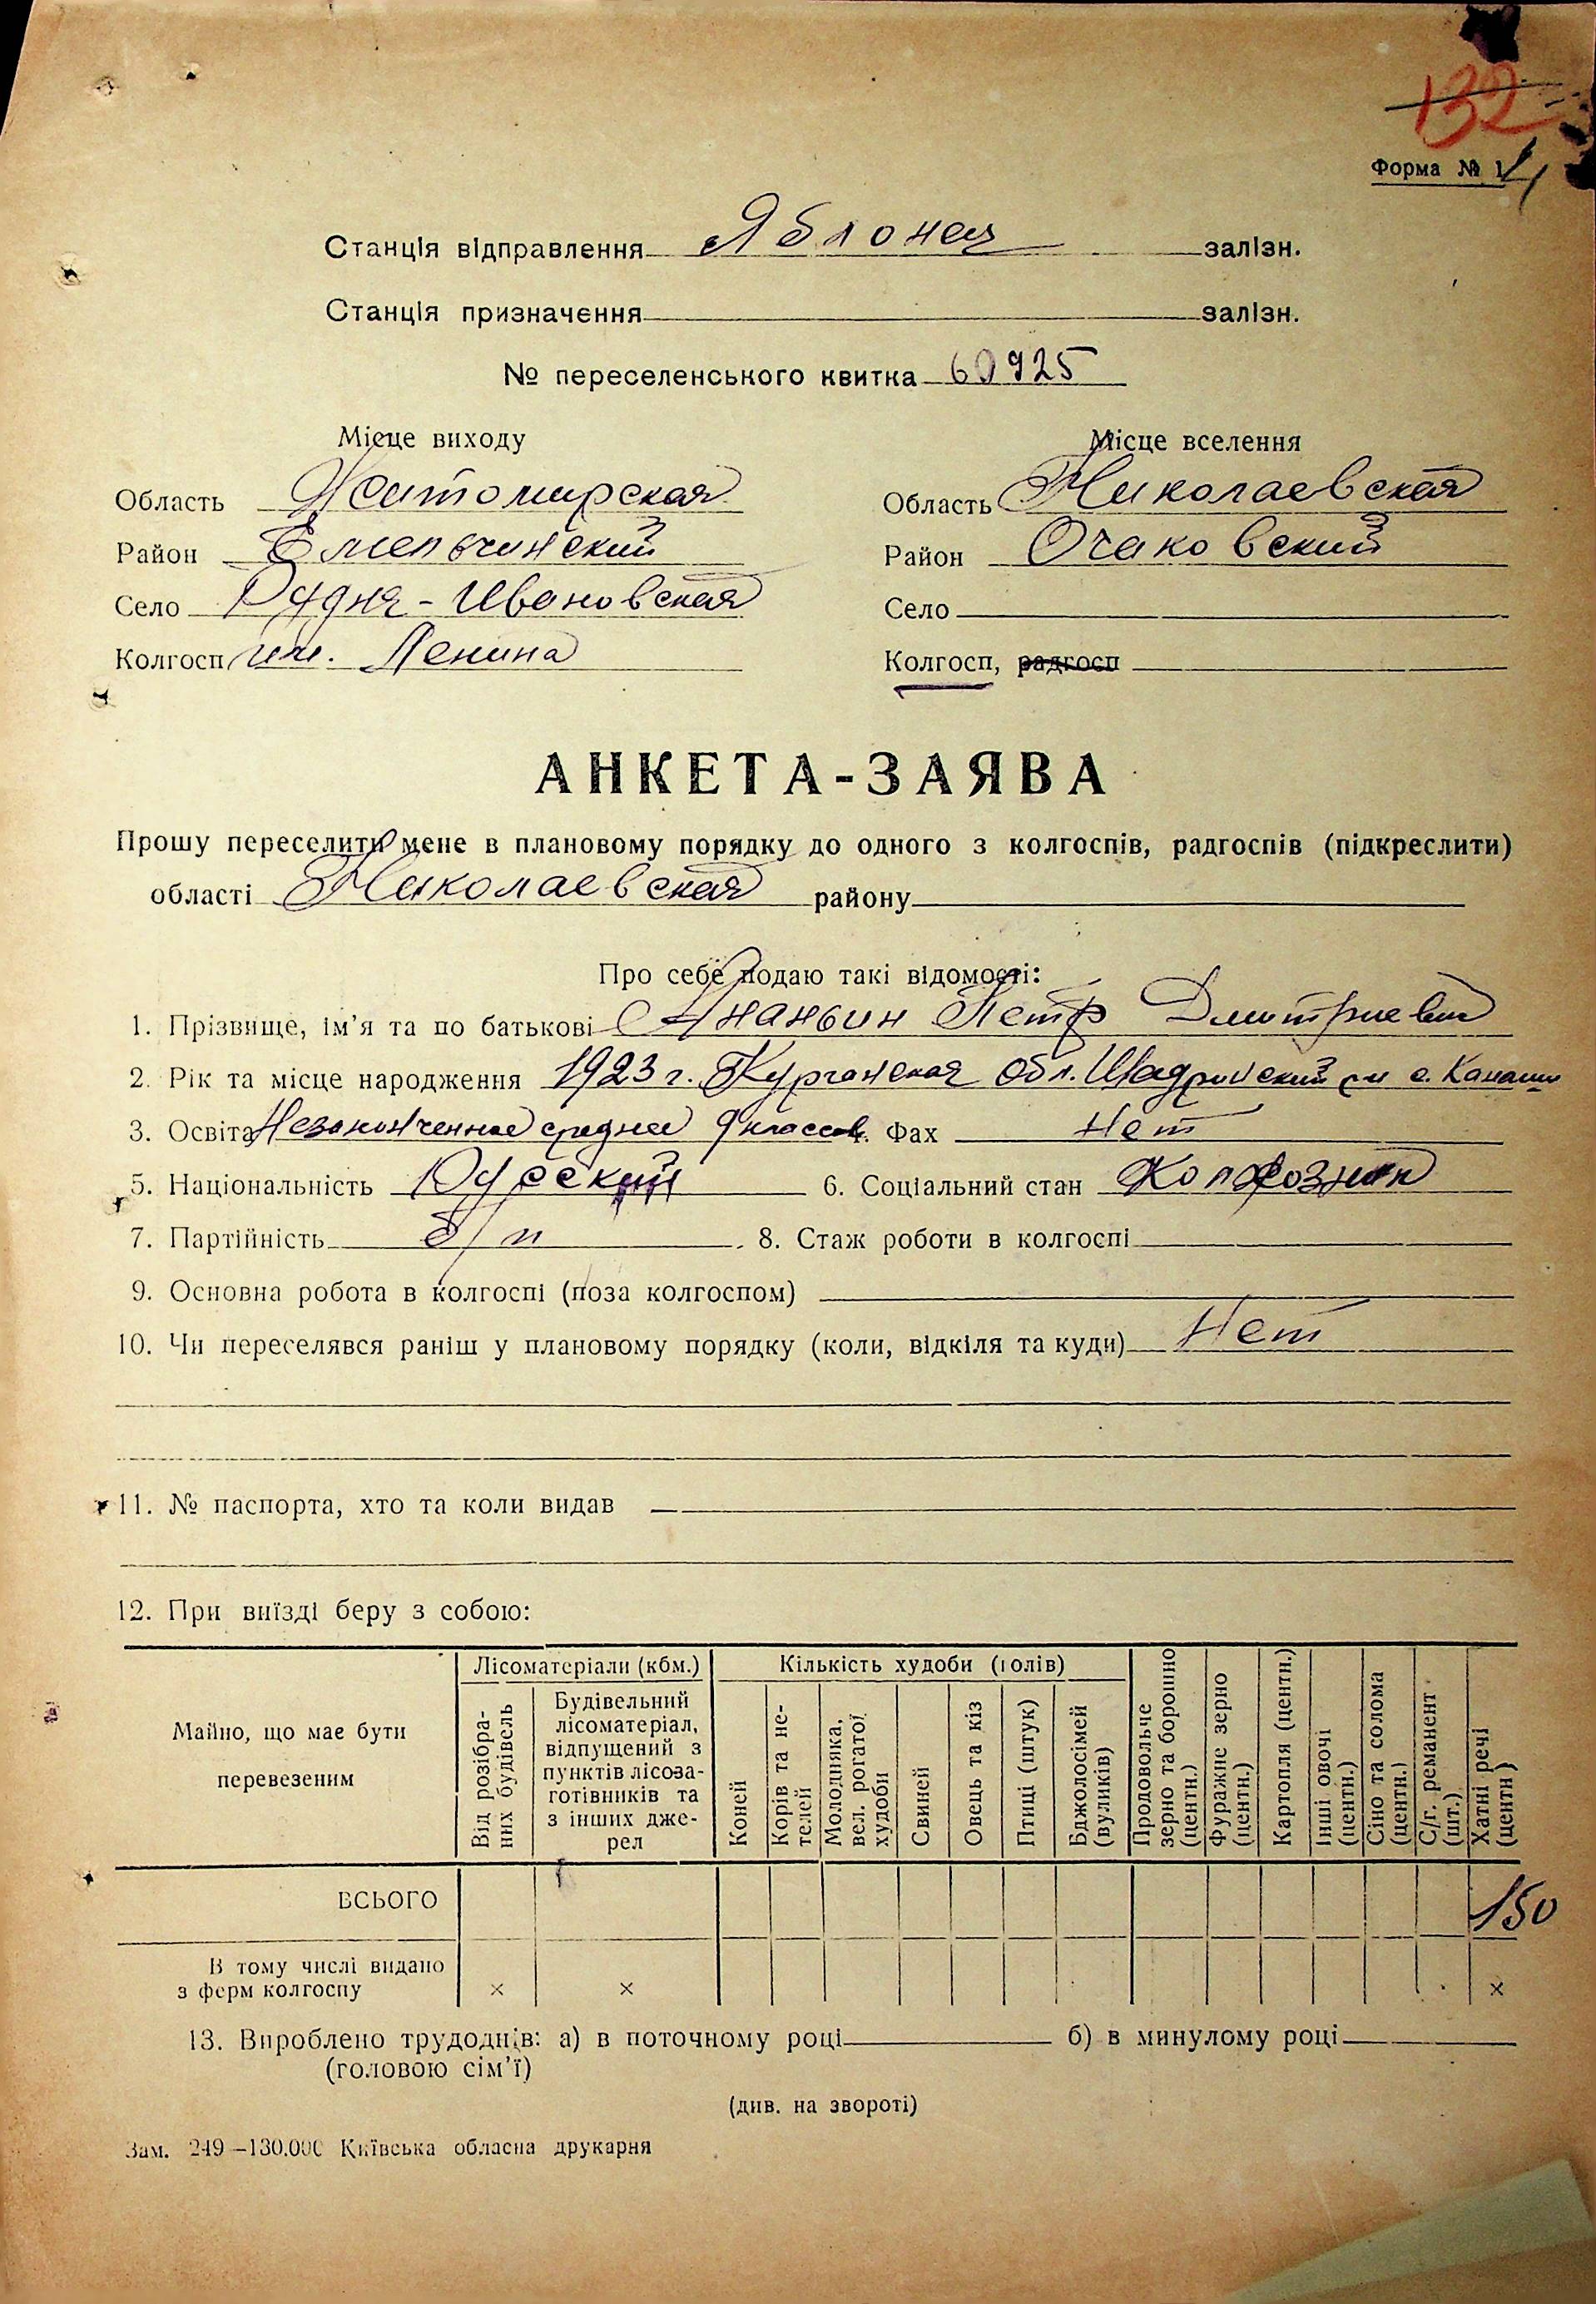 132
Форма № 1
4
Станція відправлення Яблонец залізн.
Станція призначення залізн.
№ переселенського квитка 60925
Місце виходу Місце вселення
Область Житомирская Область Николаевская
Район Емельчинский Район Очаковский
Село Рудня-Ивановская Село
Колгосп им. Ленина Колгосп, радгосп
АНКЕТА-ЗАЯВА
Прошу переселити мене в плановому порядку до одного з колгоспів, радгоспів (підкреслити)
області Николаевская району
Про себе подаю такі відомості:
1. Прізвище, ім'я та по батькові Ананьин Петр Дмитриевич
2. Рік та місце народження 1923 г. Курганская обл. Шадринский с. Канаши
3. Освіта Незаконченное среднее 9 классов 4. Фах Нет
5. Національність Русский 6. Соціальний стан Колхозник
7. Партійність б/п 8. Стаж роботи в колгоспі
9. Основна робота в колгоспі (поза колгоспом)
10. Чи переселявся раніш у плановому порядку (коли, відкіля та куди) Нет
11. № паспорта, хто та коли видав
12. При виїзді беру з собою:
Майно, що має бути перевезеним
Лісоматеріали (кбм.)
Від розібраних будівель
Будівельний лісоматеріал, відпущений з пунктів лісозаготівників та з інших джерел
Кількість худоби (голів)
Коней
Корів та нетелей
Молодняка, вел. рогатої худоби
Свиней
Овець та кіз
Птиці (штук)
Бджолосімей (вуликів)
Продовольче зерно та борошно (центн.)
Фуражне зерно (центн.)
Картопля (центн.)
Інші овочі (центн.)
Сіно та солома (центн.)
С/г. реманент (шт.)
Хатні речі (центн)
ВСЬОГО 150
В тому числі видано з ферм колгоспу × × ×
13. Вироблено трудоднів: а) в поточному році б) в минулому році
(головою сім'ї)
(див. на звороті)
Зам. 249—130.000 Київська обласна друкарня